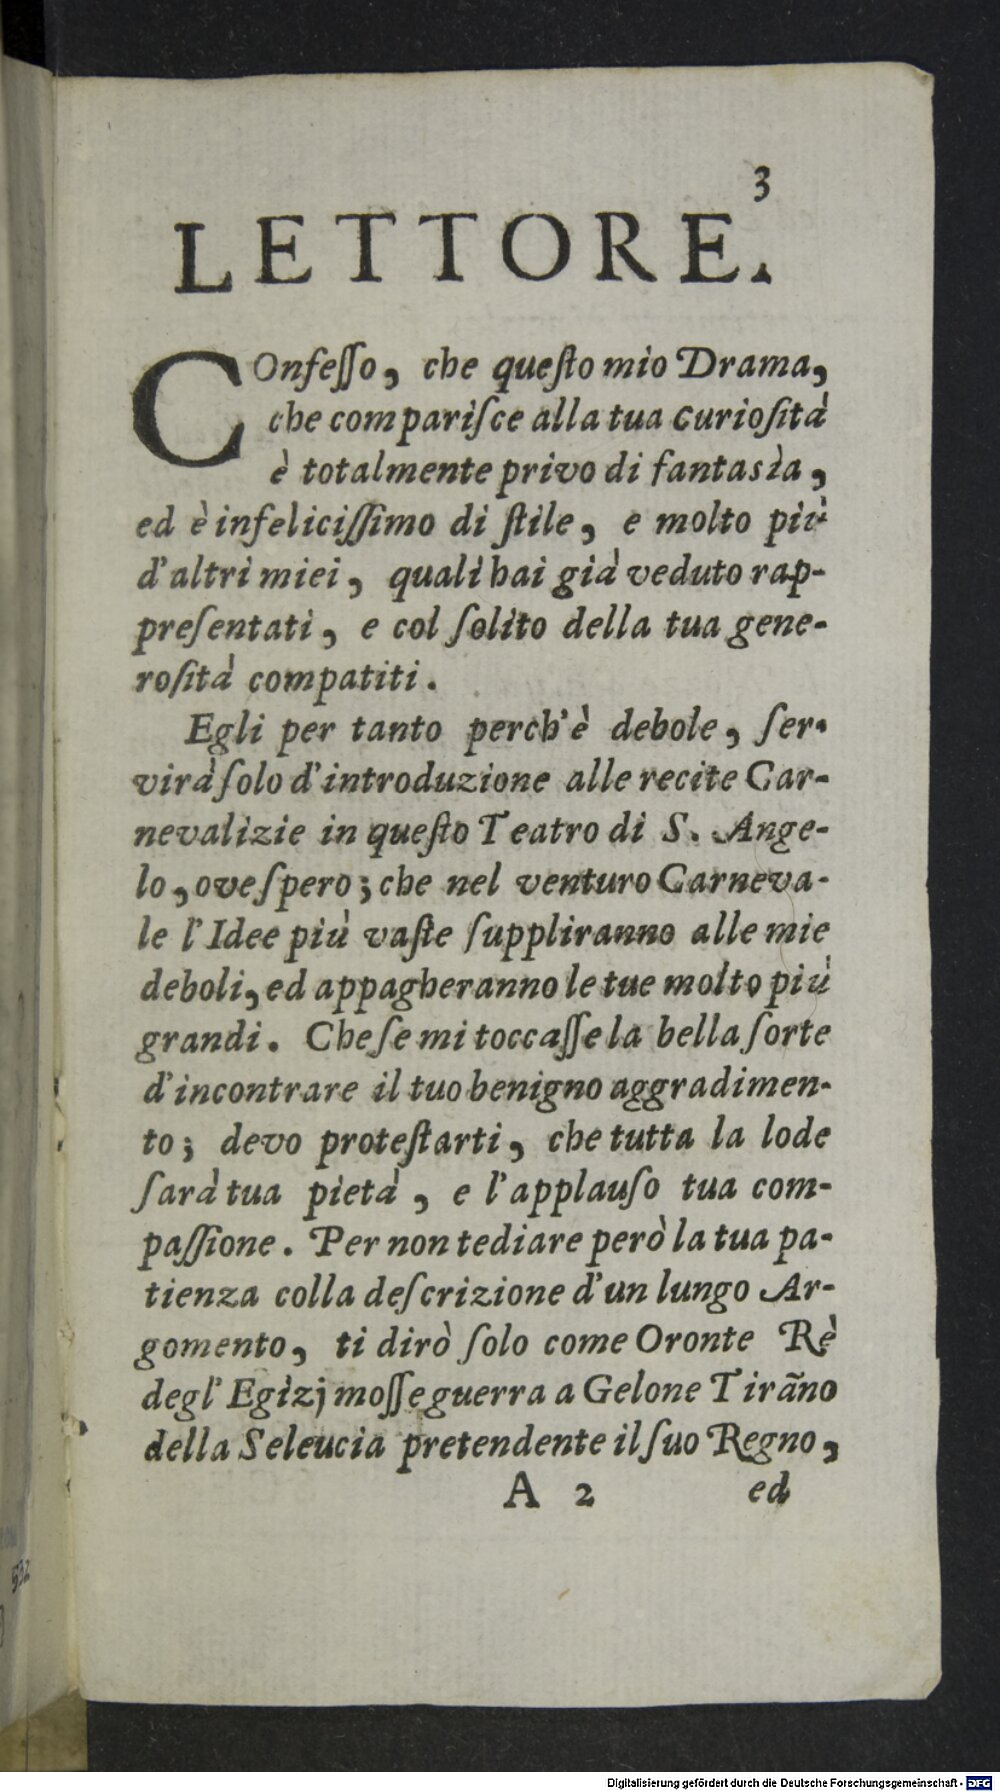 3
LETTORE.
COnfeſſo, che queſto mio Drama,
che compariſce alla tua curioſità
è totalmente privo di fantasìa,
ed è infeliciſſimo di ſtile, e molto più
d'altri miei, quali hai già veduto rap-
preſentati, e col ſolito della tua gene-
roſità compatiti.
Egli per tanto perch'è debole, ſer-
virà ſolo d'introduzione alle recite Car-
nevalizie in queſto Teatro di S. Ange-
lo, ove ſpero; che nel venturo Carneva-
le l'Idee più vaſte ſuppliranno alle mie
deboli, ed appagheranno le tue molto più
grandi. Che ſe mi toccaſſe la bella ſorte
d'incontrare il tuo benigno aggradimen-
to; devo proteſtarti, che tutta la lode
ſarà tua pietà, e l'applauſo tua com-
paſſione. Per non tediare però la tua pa-
tienza colla deſcrizione d'un lungo Ar-
gomento, ti dirò ſolo come Oronte Rè
degl' Egizj moſſe guerra a Gelone Tirãno
della Seleucia pretendente il ſuo Regno,
A 2 ed
532
Digitalisierung gefördert durch die Deutsche Forschungsgemeinschaft - DFG